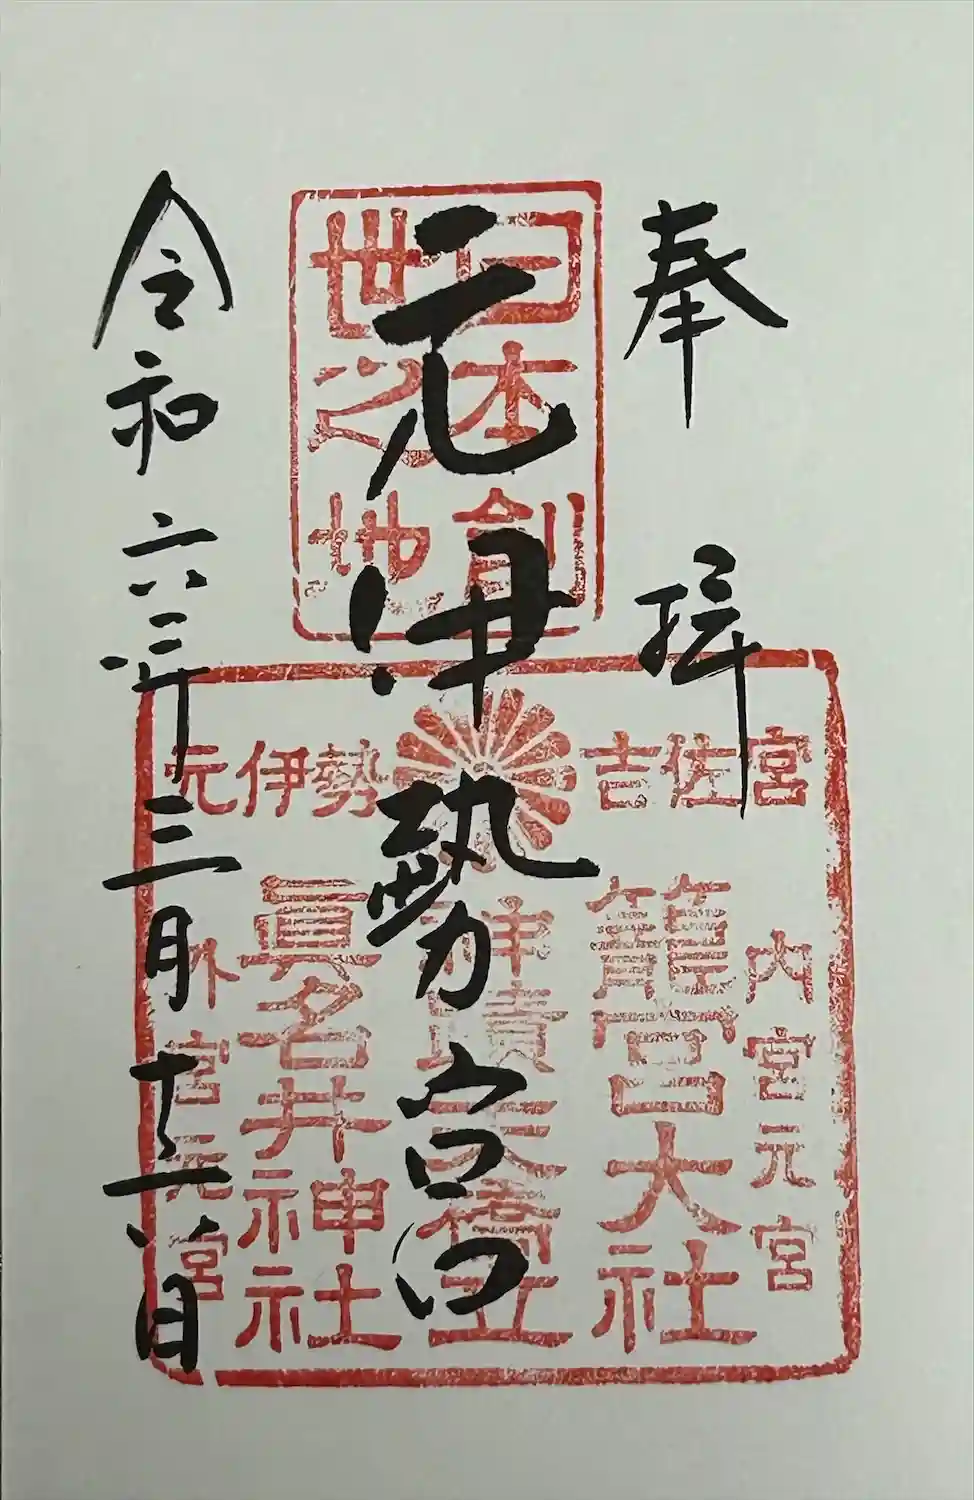 奉拝
日本創
世之地
元伊勢宮
令和六年三月十六日
元伊勢 吉佐宮
内宮元宮
籠宮大社
神蹟天橋立
眞名井神社
外宮元宮